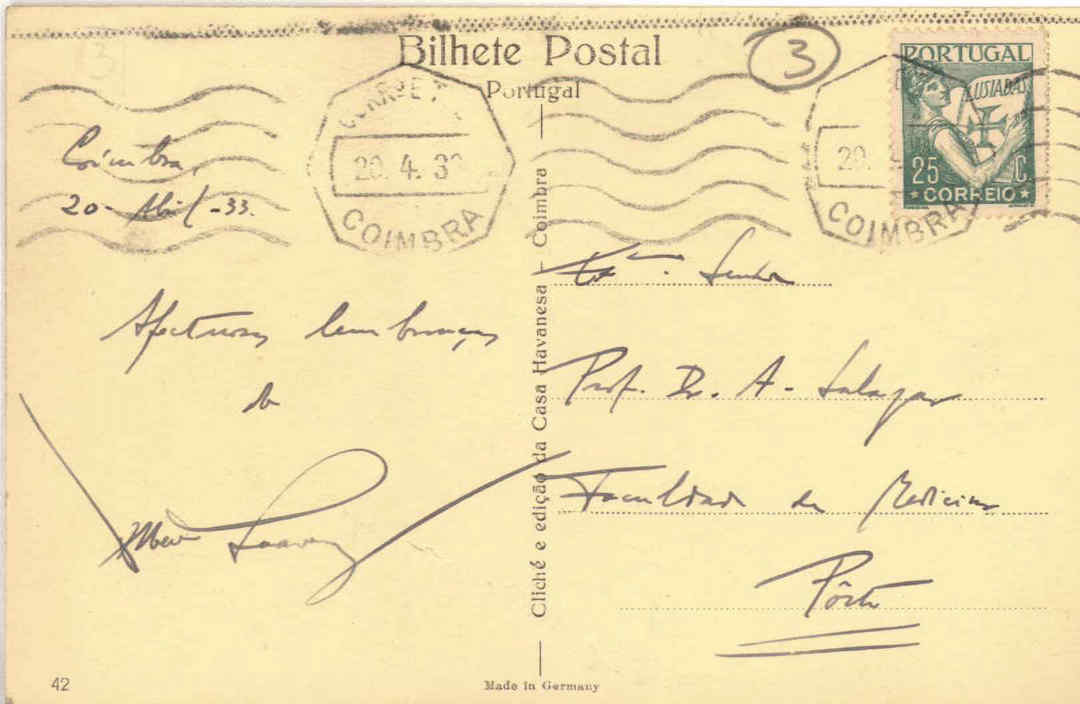 Bilhete Postal
Portugal
3
PORTUGAL
LUSIADAS
25 C.
CORREIO
20. 4. 3
COIMBRA
20.
COIMBRA
Coimbra,
20 - Abril - 33.
Afectuosas lembranças
do
Exmo. Senhor
Prof. Dr. A. Salazar
Faculdade de Medicina
Pôrto
Cliché e edição da Casa Havanesa - Coimbra
42
Made in Germany